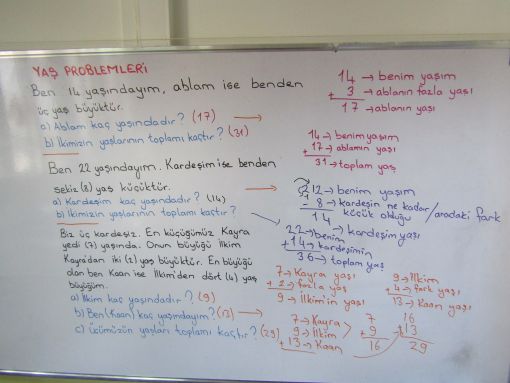 YAŞ PROBLEMLERİ
Ben 14 yaşındayım, ablam ise benden
üç yaş büyüktür.
a) Ablam kaç yaşındadır? (17)
b) İkimizin yaşlarının toplamı kaçtır? (31)
14 → benim yaşım
+ 3 → ablanın fazla yaşı
17 → ablanın yaşı
14 → benim yaşım
+ 17 → ablamın yaşı
31 → toplam yaş
Ben 22 yaşındayım. Kardeşim ise benden
sekiz (8) yaş küçüktür.
a) Kardeşim kaç yaşındadır? (14)
b) İkimizin yaşlarının toplamı kaçtır?
12 → benim yaşım
- 8 → kardeşin ne kadar küçük olduğu / aradaki fark
14 → kardeşim yaşı
22 → benim
+ 14 → kardeşimin
36 → toplam yaş
Biz üç kardeşiz. En küçüğümüz Kayra
yedi (7) yaşında. Onun büyüğü İlkim
Kayra'dan iki (2) yaş büyüktür. En büyüğü
olan ben Kaan ise İlkim'den dört (4) yaş
büyüğüm.
a) İlkim kaç yaşındadır? (9)
b) Ben (Kaan) kaç yaşındayım? (13)
c) Üçümüzün yaşları toplamı kaçtır? (29)
7 → Kayra yaşı
+ 2 → fazla yaş
9 → İlkim'in yaşı
9 → İlkim
+ 4 → fark yaşı
13 → Kaan yaşı
7 → Kayra
9 → İlkim
+ 13 → Kaan
7
+ 9
16
16
+ 13
29